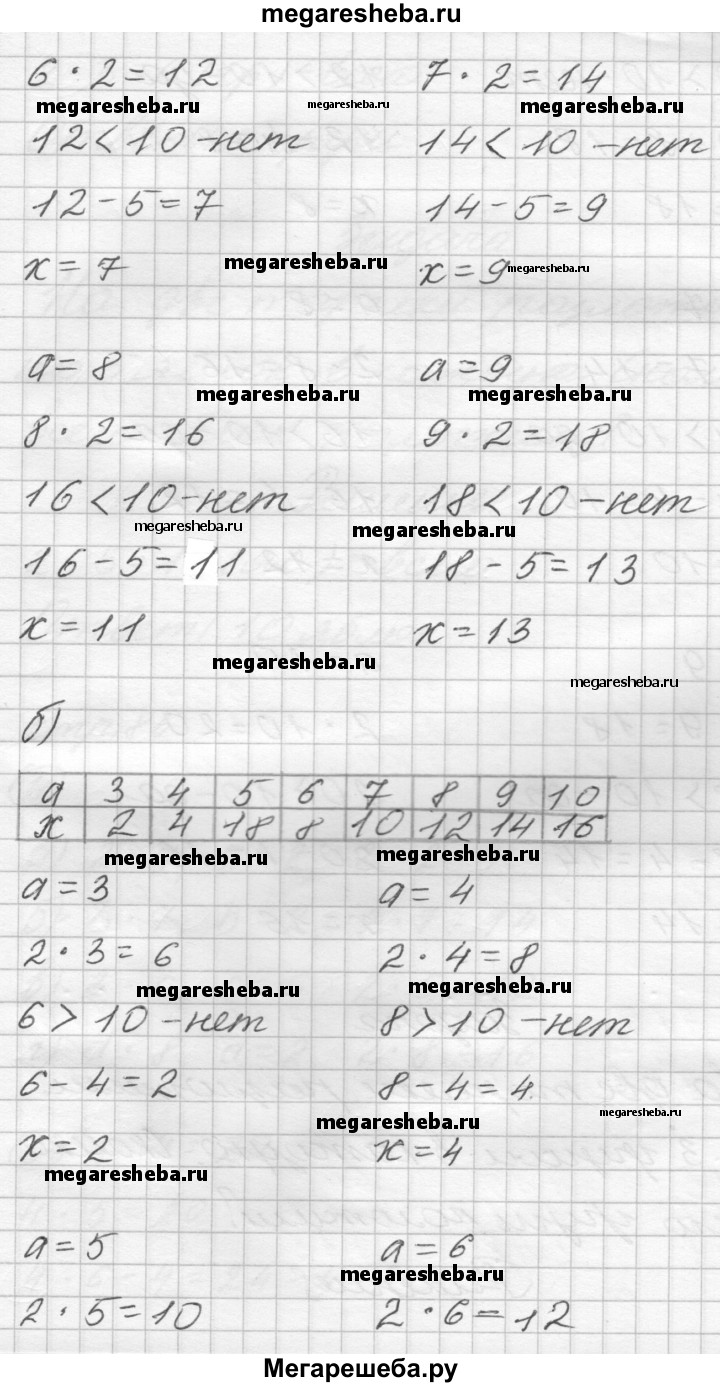 megaresheba.ru
6 · 2 = 12 7 · 2 = 14
megaresheba.ru megaresheba.ru megaresheba.ru
12 < 10 - нет 14 < 10 - нет
12 - 5 = 7 14 - 5 = 9
x = 7 megaresheba.ru x = 9 megaresheba.ru
a = 8 a = 9
megaresheba.ru megaresheba.ru
8 · 2 = 16 9 · 2 = 18
16 < 10 - нет 18 < 10 - нет
megaresheba.ru megaresheba.ru
16 - 5 = 11 18 - 5 = 13
x = 11 x = 13
megaresheba.ru megaresheba.ru
б)
a 3 4 5 6 7 8 9 10
x 2 4 18 8 10 12 14 16
megaresheba.ru megaresheba.ru
a = 3 a = 4
2 · 3 = 6 2 · 4 = 8
megaresheba.ru megaresheba.ru
6 > 10 - нет 8 > 10 - нет
6 - 4 = 2 8 - 4 = 4
megaresheba.ru megaresheba.ru
x = 2 x = 4
megaresheba.ru
a = 5 a = 6
megaresheba.ru
2 · 5 = 10 2 · 6 = 12
Мегарешеба.ру